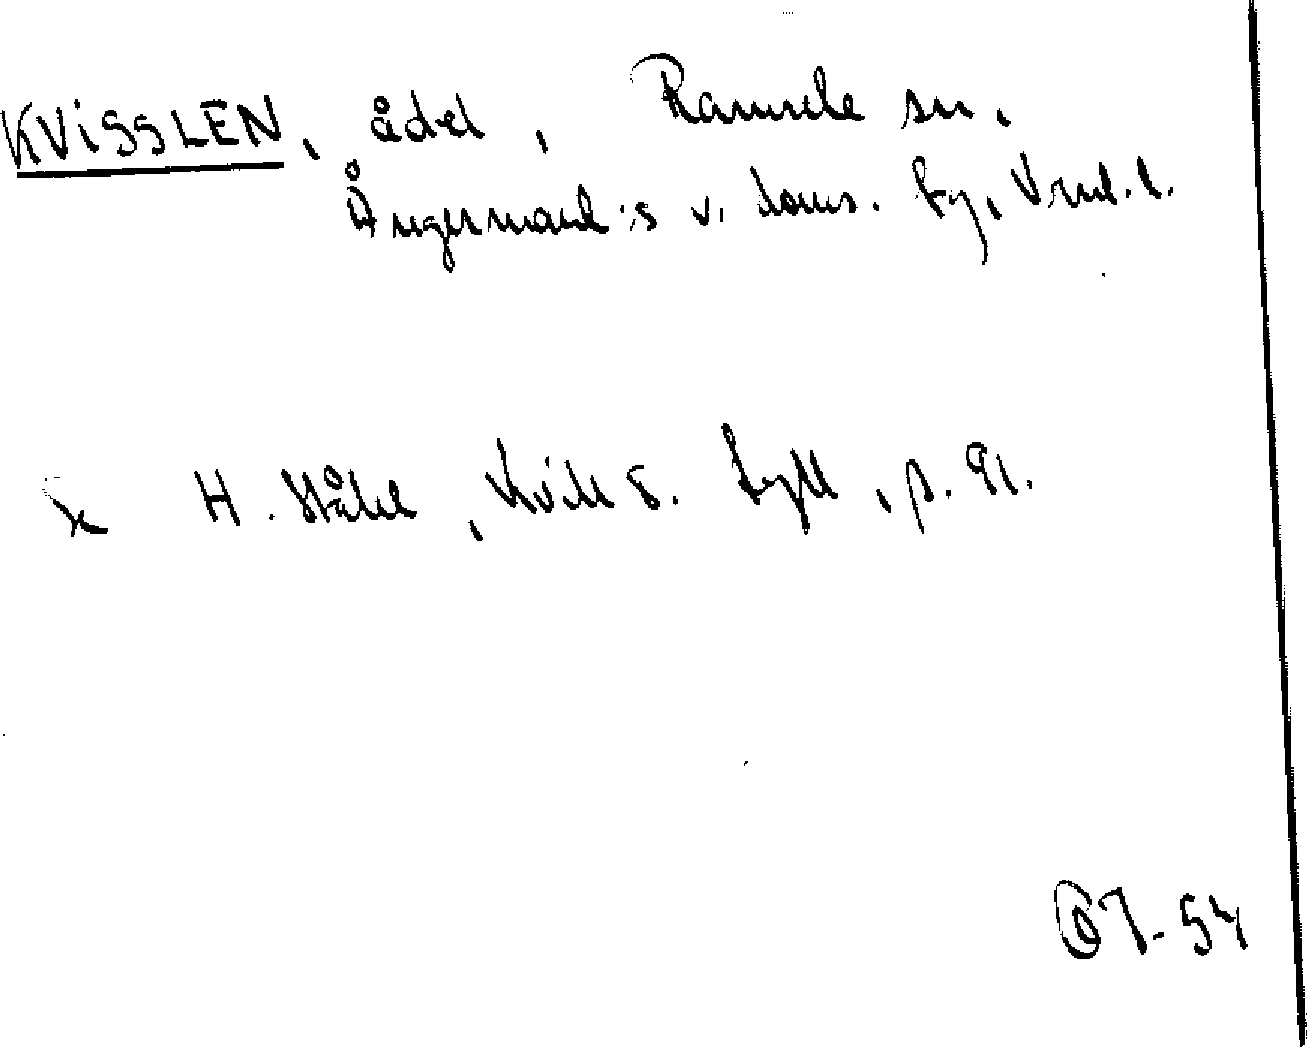 KVISSLEN, ådel, Ramsele sn,
Ångermanl:s v. doms. fgd, Vrnl. l.
H. Ståhl, Kvill o. tyll, p. 91.
67-54